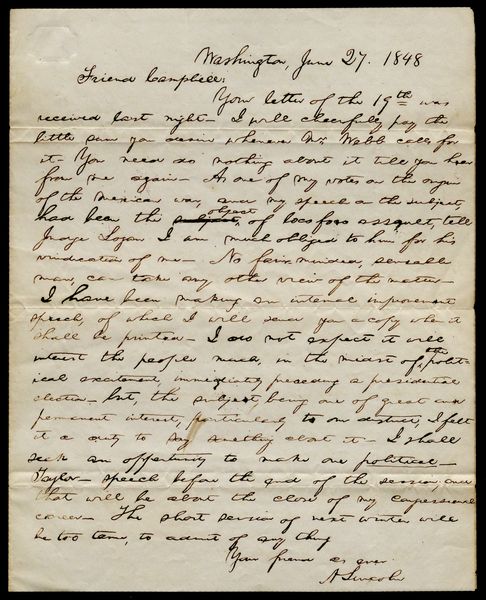 Washington, June 27. 1848
Friend Campbell:
Your letter of the 19th was
received last night— I will cheerfully pay the
little sum you desire whenever Mr. Webb calls for
it— You need do nothing about it till you hear
from me again— As one of my votes on the origin
of the Mexican war, and my speech on the subject,
had been the subject, object of locofoco assault, tell
Judge Logan I am much obliged to him for his
vindication of me— No fair minded, sensible
man, can take any other view of the matter—
I have been making an internal improvement
speech, of which I will send you a copy when it
shall be printed— I do not expect it will
interest the people much, in the midst of the polit-
ical excitement, immediately preceding a presidential
election— but, the subject, being one of great and
permanent interest, particularly to our district, I felt
it a duty to say something about it— I shall
seek an opportunity to make one political—
Taylor— speech before the end of the session; and
that will be about the close of my congressional
career— The short session of next winter will
be too tame, to admit of any thing
Your friend as ever
A Lincoln